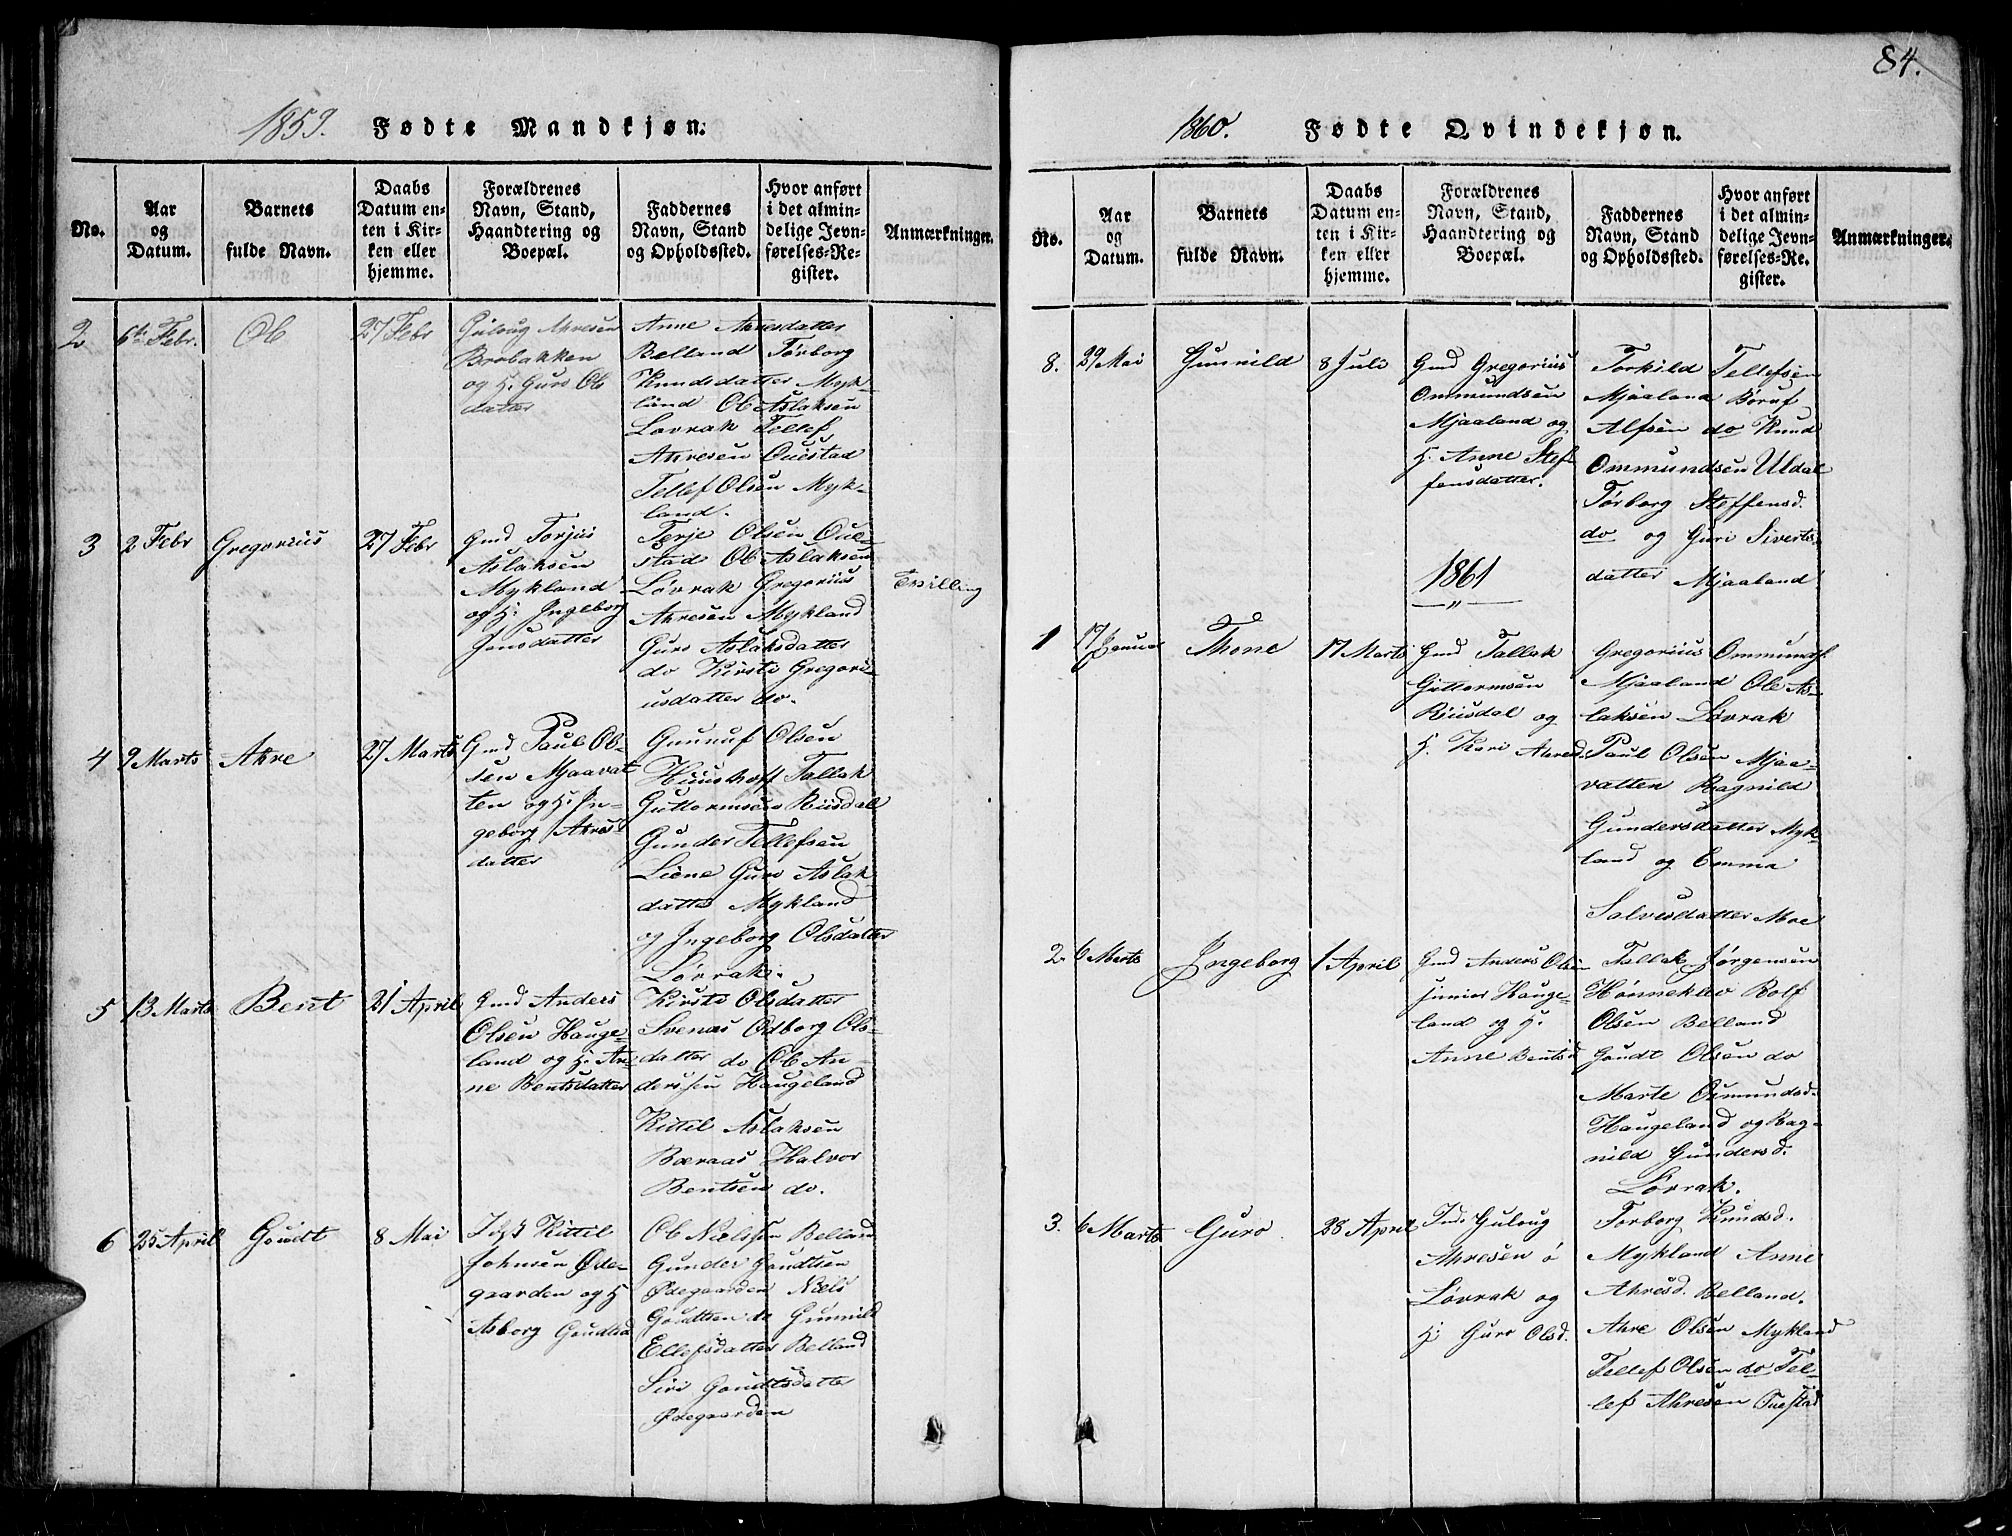 84.
1859. Fødte Mandkjøn.
No.
Aar
og
Datum.
Barnets
fulde Navn.
Daabs
Datum en-
ten i Kir-
ken eller
hjemme.
Forældrenes
Navn, Stand,
Haandtering og
Boepæl.
Faddernes
Navn, Stand
og Opholdssted.
Hvor anført
i det almin-
delige Jevn-
førelses-Re-
gister.
Anmærkninger.
2
6te Febr.
Ole
27 Febr
Guloug Ahresen
Brobakken
og H. Guro Ols
datter
Anne Ahresdatter
Belland Torborg
Knudsdatter Myk-
land Ole Aslaksen
Løvrak Tellef
Ahresen Ouestad
Tellef Olsen Myk-
land.
3
2 Febr
Gregorius
27 Febr
Gmd Torjus
Aslaksen
Mykland
og H. Ingeborg
Jensdatter
Terje Olsen Oue-
stad Ole Aslaksen
Løvrak Gregorius
Ahresen Mykland
Guro Aslaksdatter
do Kirsti Gregori-
usdatter do.
Tvilling
4
9 Marts
Ahre
27 Marts
Gmd Paul Ol-
sen Mjaavat
ten og H. In-
geborg Ahres
datter
Gunuf Olsen
Huushoft Tallak
Guttormsen Riisdal
Gunder Tellefsen
Liene Guro Aslak
datter Mykland
og Ingeborg Olsdatter
Løvrak.
5
13 Marts
Bent
21 April
Gmd Anders
Olsen Hauge-
land og H. An
ne Bentsdatter
Kirsti Olsdatter
Svenas Odborg Ols-
datter do Ole An-
derssen Haugeland
Kittil Aslaksen
Bæraas Halvor
Bentsen do.
6
25 April
Goudt
8 Mai
Inst Kittil
Johnsen Øde-
gaarden og H
Asborg Goudtsd
Ole Nielssen Belland
Gunder Goudtsen
Ødegaarden Niels
Goudtsen do Gunnild
Ellefsdatter Belland
Siri Goudtsdatter
Ødegaarden
1860. Fødte Qvindekjøn.
No.
Aar
og
Datum.
Barnets
fulde Navn.
Daabs
Datum en-
ten i Kir-
ken eller
hjemme.
Forældrenes
Navn, Stand,
Haandtering og
Boepæl.
Faddernes
Navn, Stand
og Opholdssted.
Hvor anført
i det almin-
delige Jevn-
førelses-Re-
gister.
Anmærkninger.
8.
29 Mai
Gunnild
8 Juli
Gmd Gregorius
Ommundsen
Mjaaland og
H. Anne Stef
fensdatter.
Torkild Tellefsen
Mjaaland Boruf
Alfsen do Knud
Ommundsen Uldal
Torborg Steffensd.
do og Guri Siverts-
datter Mjaaland
1861
1
17 Januar
Thone
17 Marts
Gmd Tallak
Guttormsen
Riisdal og
H. Kari Ahresd
Gregorius Ommundsf.
Mjaaland Ole As-
laksen Løvrak
Paul Olsen Mjaa-
vatten Ragnild
Gundersdatter Myk-
land og Emma
Salvesdatter Moe
2.
6 Marts
Ingeborg
1 April
Gmd Anders Olsen
junior Hauge-
land og H.
Anne Bentsd
Tallak Jørgensen
Hønneklev Rolf
Olsen Belland
Goudt Olsen do
Marte Osmundsd.
Haugeland og Rag-
nild Gundersd.
Løvrak.
3.
6 Marts
Guro
28 April
Ind. Guloug
Ahresen ø
Løvrak og
H. Guro Olsd.
Torborg Knudsd.
Mykland Anne
Ahresd. Belland.
Ahre Olsen Mykland
Tellef Olsen do Tel-
lef Ahresen Tuestad